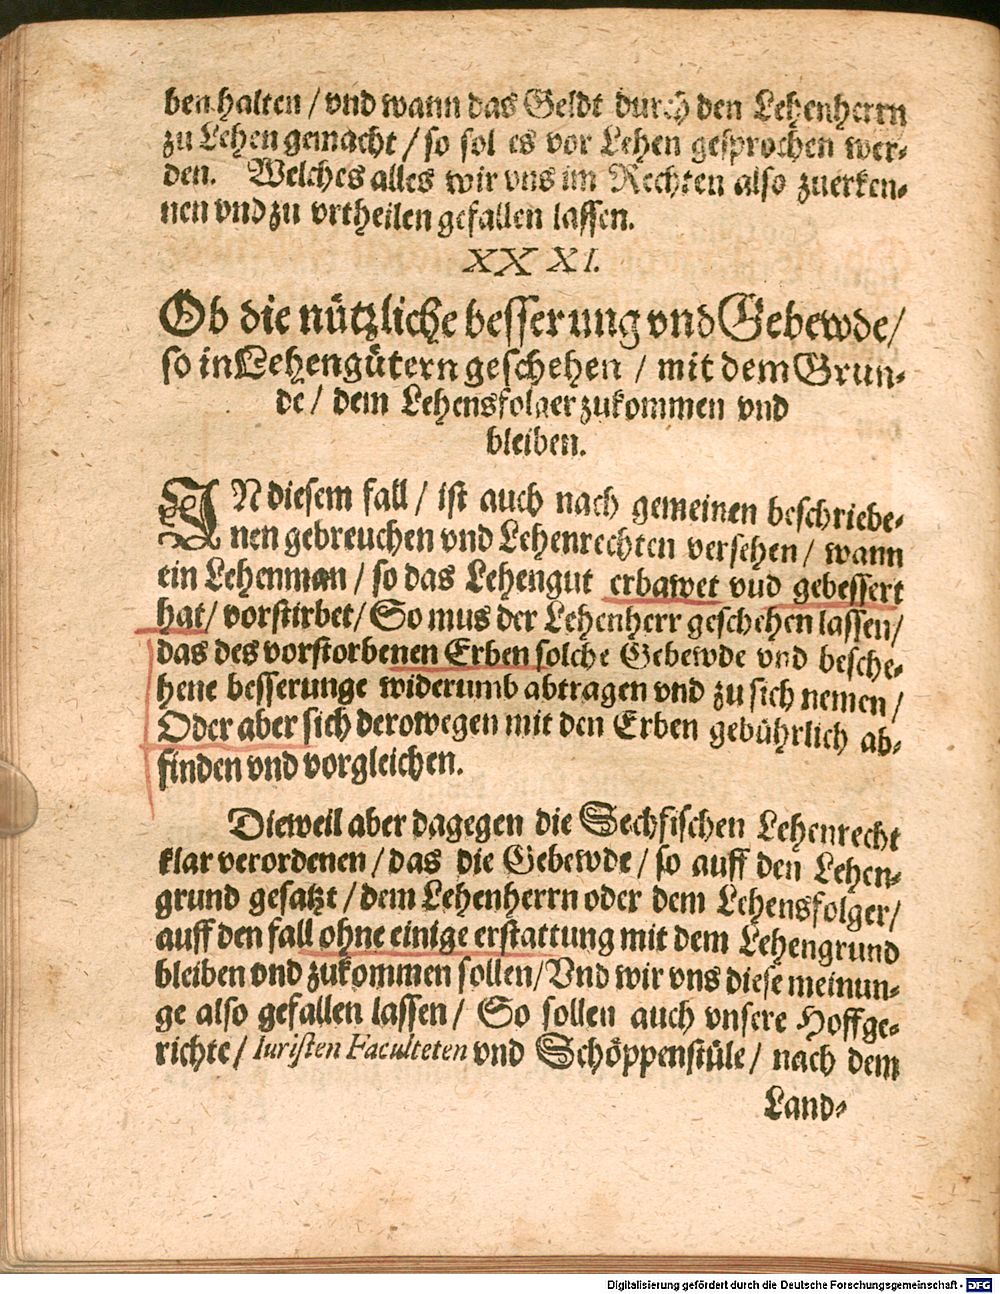 ben halten / vnd wann das Geldt durch den Lehenherrn
zu Lehen gemacht / so sol es vor Lehen gesprochen wer-
den. Welches alles wir vns im Rechten also zuerken-
nen vnd zu vrtheilen gefallen lassen.
XXXI.
Ob die nützliche besserung vnd Gebewde /
so in Lehengütern geschehen / mit dem Grun-
de / dem Lehensfolger zukommen vnd
bleiben.
IN diesem fall / ist auch nach gemeinen beschriebe-
nen gebreuchen vnd Lehenrechten versehen / wann
ein Lehenman / so das Lehengut erbawet vud gebessert
hat / vorstirbet / So mus der Lehenherr geschehen lassen /
das des vorstorbenen Erben solche Gebewde vnd besche-
hene besserunge widerumb abtragen vnd zu sich nemen /
Oder aber sich derowegen mit den Erben gebührlich ab-
finden vnd vorgleichen.
Dieweil aber dagegen die Sechsischen Lehenrecht
klar verordenen / das die Gebewde / so auff den Lehen-
grund gesatzt / dem Lehenherrn oder dem Lehensfolger /
auff den fall ohne einige erstattung mit dem Lehengrund
bleiben vnd zukommen sollen / Vnd wir vns diese meinun-
ge also gefallen lassen / So sollen auch vnsere Hoffge-
richte / Iuristen Faculteten vnd Schöppenstüle / nach dem
Land-
Digitalisierung gefördert durch die Deutsche Forschungsgemeinschaft - DFG